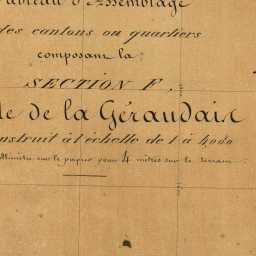 Tableau d'Assemblage
des cantons ou quartiers
composant la
SECTION F.
de la Géraudais
construit à l'échelle de 1 à 4000
Millimètre sur le papier pour 4 mètres sur le terrain.